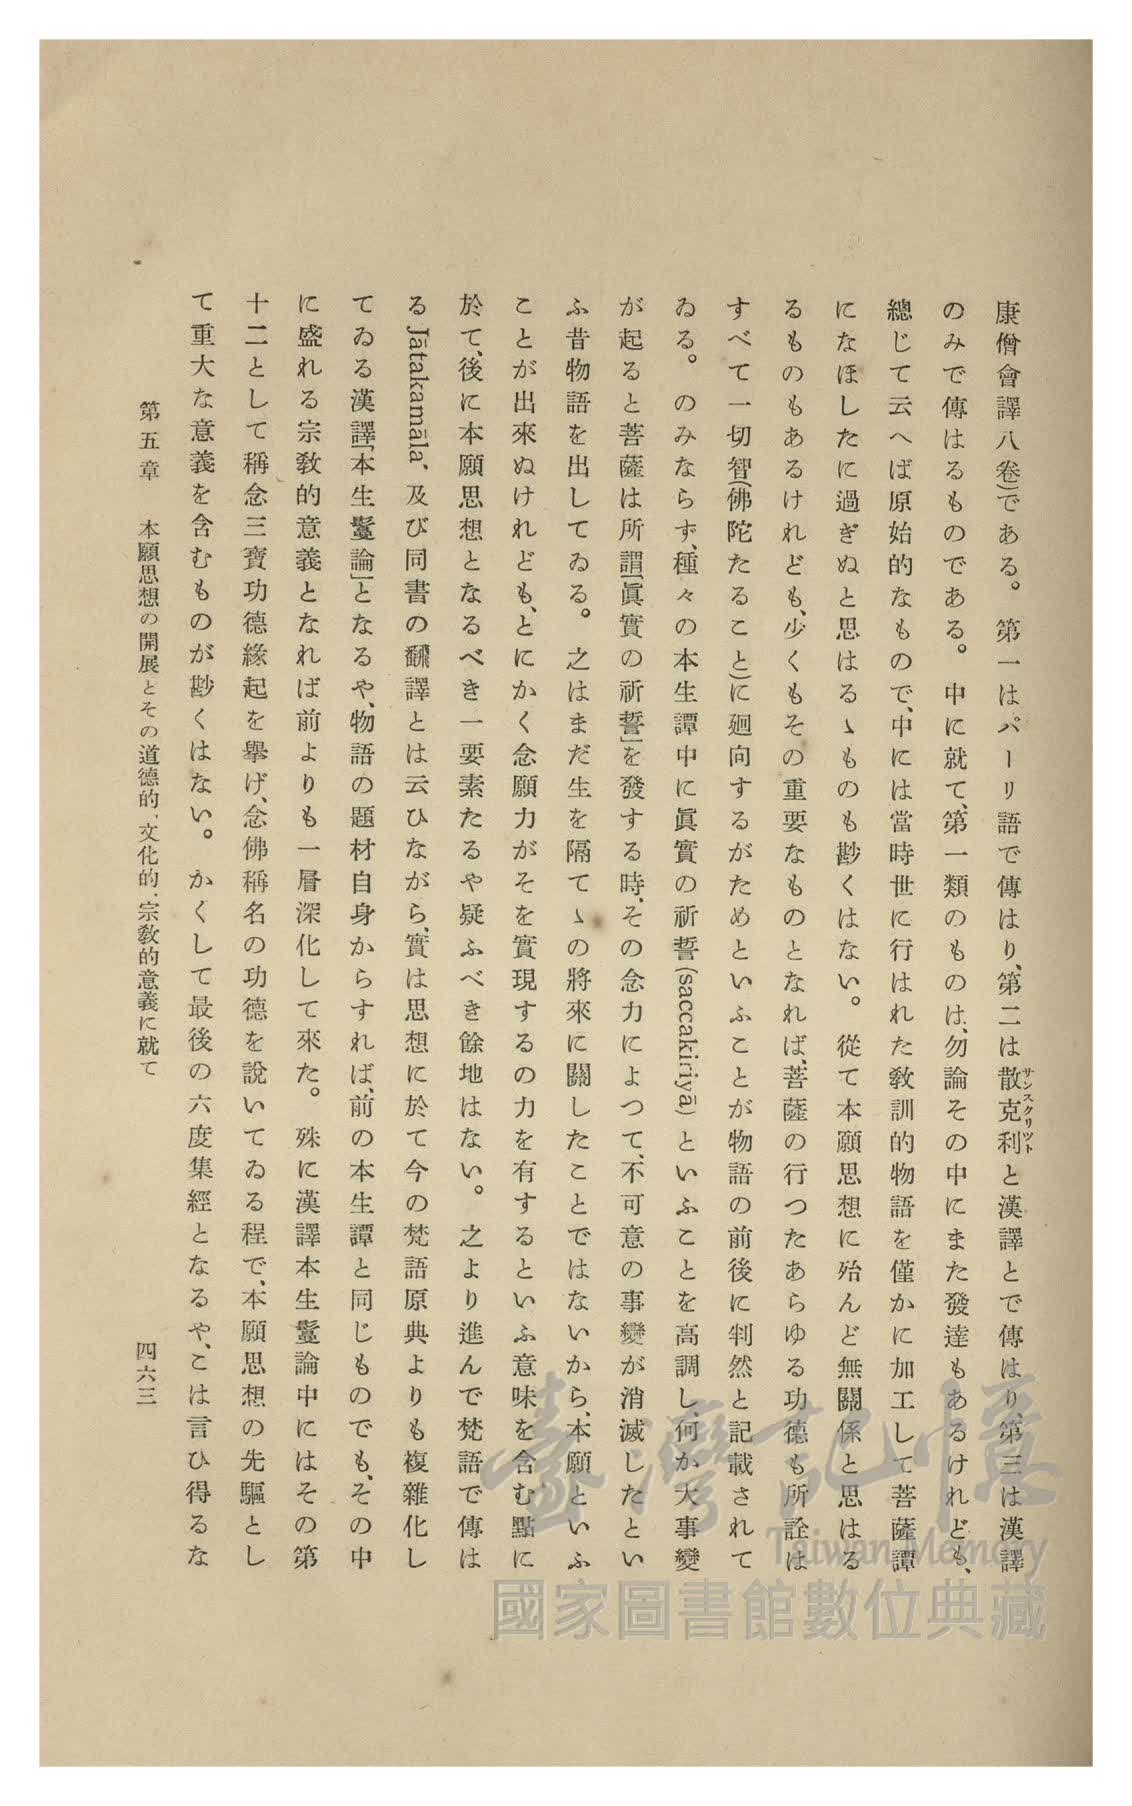 康僧會譯八卷)である。第一はパーリ語で傳はり、第二は散克利と漢譯とで傳はり、第三は漢譯
サンスクリツト
のみで傳はるものである。中に就て、第一類のものは、勿論その中にまた發達もあるけれども、
總じて云へば原始的なもので、中には當時世に行はれた敎訓的物語を僅かに加工して菩薩譚
になほしたに過ぎぬと思はるゝものも尠くはない。從て本願思想に殆んど無關係と思はる
るものもあるけれども、少くもその重要なものとなれば、菩薩の行つたあらゆる功德も所詮は
すべて一切智(佛陀たること)に廻向するがためといふことが物語の前後に判然と記載されて
ゐる。のみならず、種々の本生譚中に眞實の祈誓(saccakiriyā)といふことを高調し、何か大事變
が起ると菩薩は所謂「眞實の祈誓」を發する時、その念力によつて、不可意の事變が消滅したとい
ふ昔物語を出してゐる。之はまだ生を隔てゝの將來に關したことではないから、本願といふ
ことが出來ぬけれども、とにかく念願力がそを實現するの力を有するといふ意味を含む點に
於て、後に本願思想となるべき一要素たるや疑ふべき餘地はない。之より進んで梵語で傳は
る Jātakamāla、及び同書の飜譯とは云ひながら、實は思想に於て今の梵語原典よりも複雜化し
てゐる漢譯「本生鬘論」となるや、物語の題材自身からすれば、前の本生譚と同じものでも、その中
に盛れる宗敎的意義となれば前よりも一層深化して來た。殊に漢譯本生鬘論中にはその第
十二として稱念三寶功德緣起を擧げ、念佛稱名の功德を說いてゐる程で、本願思想の先驅とし
て重大な意義を含むものが尠くはない。かくして最後の六度集經となるや、こは言ひ得るな
第五章 本願思想の開展とその道德的、文化的、宗敎的意義に就て
四六三
臺灣記憶
Taiwan Memory
國家圖書館數位典藏